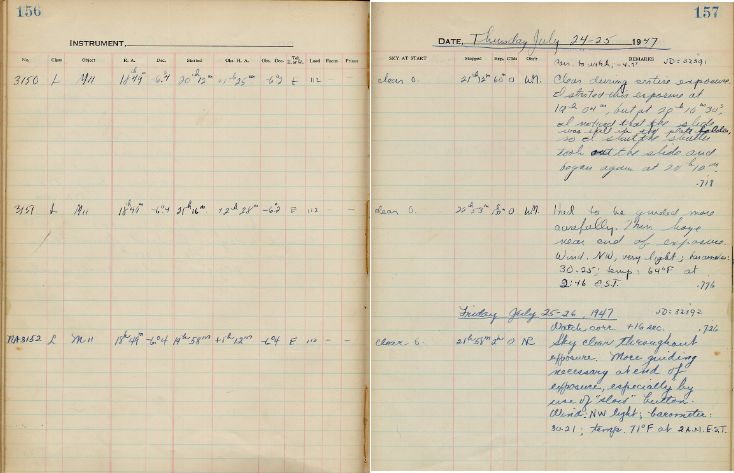 156
INSTRUMENT,
No. Class Object R. A. Dec. Started Obs. H. A. Obs. Dec. Load Focus Prism
3150 L M11 18h 49m -6°.4 20h 12m +1h 25m -6°.2 E 112 - -
3151 L M11 18h 49m -6°.4 21h 16m +2h 28m -6°.2 E 112 - -
3152 L M11 18h 49m -6°.4 19h 58m +1h 12m -6°.4 E 112 - -
157
DATE, Thursday July 24-25 1947
SKY AT START Stopped Exp. Clids Obs'r REMARKS
JD=32391
clear 0. 21h 12m 60m 0 WM. Clear during entire exposure.
I started this exposure at
19h 04m, but at 20h 10m 30s
I noticed that the slide
was still in the plate holder,
so I shut the shutter
took out the slide and
began again at 20h 10m.
.718
clear 0. 0 WM. Had to be guided more
carefully. Thin haze
near end of exposure.
Wind: NW, very light; barometer:
30.25; temp. 64°F at
2:46 E.S.T. .776
Friday July 25-26, 1947 JD=32392
Watch corr. +16 sec. .726
clear 0. 21h 58m 2h 0 NR Sky clear throughout
exposure. More guiding
necessary at end of
exposure, especially by
use of "slow" button.
Wind: NW light; barometer:
30.21; temp. 71°F at 2 A.M. E.S.T.